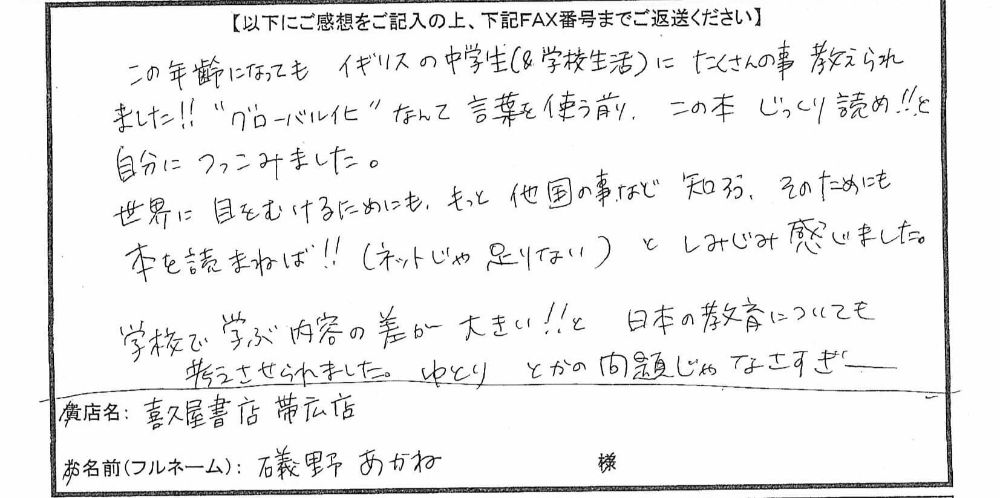 【以下にご感想をご記入の上、下記FAX番号までご返送ください】
この年齢になっても イギリスの中学生(&学校生活)に たくさんの事 教えられ
ました!! "グローバル化" なんて 言葉を使う前に、この本 じっくり読め!!と
自分に つっこみました。
世界に 目をむけるためにも、もっと 他国の事など 知ろう、そのためにも
本を読まねば!! (ネットじゃ 足りない) と しみじみ 感じました。
学校で 学ぶ 内容の 差が 大きい!!と 日本の教育についても
考えさせられました。 ゆとり とかの 問題じゃ なさすぎー
貴店名: 喜久屋書店 帯広店
お名前(フルネーム): 礒野 あかね 様